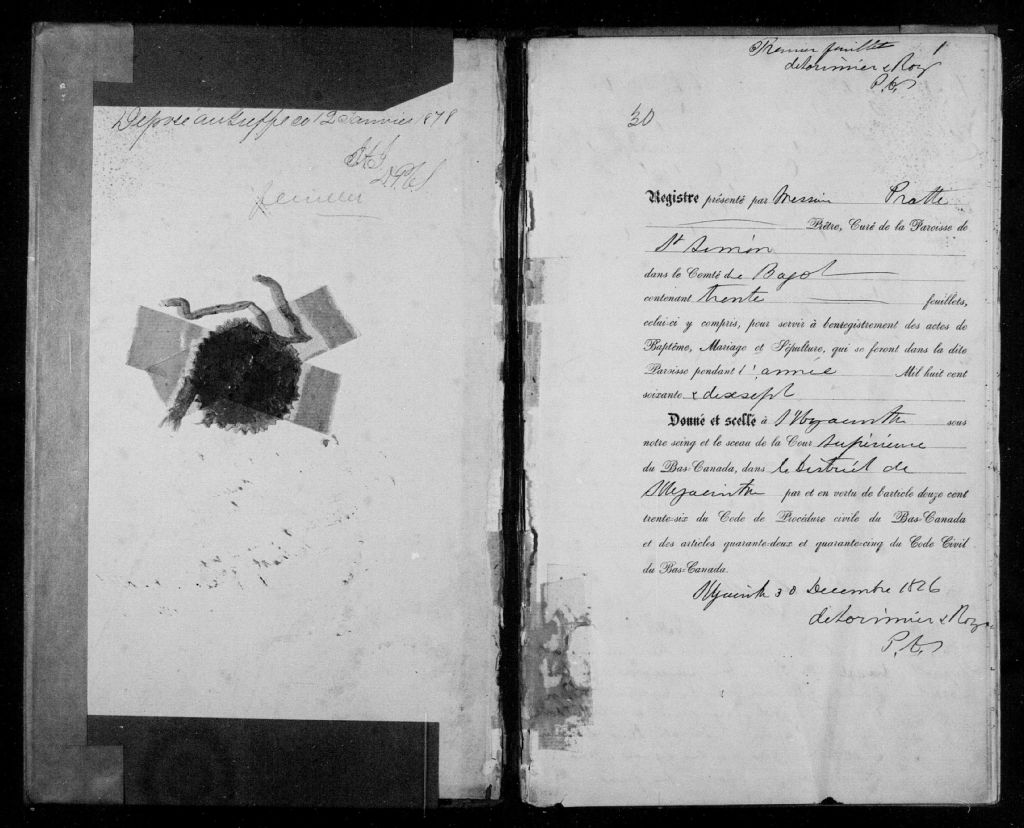 Déposé au Greffe ce 12 Janvier 1878
Premier feuillet 1
deLorimier & Roy
P.C.S
30
Registre présenté par Messire Pratte
Prêtre, Curé de la Paroisse de
St Simon
dans le Comté de Bagot
contenant trente feuillets,
celui-ci y compris, pour servir à l'enregistrement des actes de
Baptême, Mariage et Sépulture, qui se feront dans la dite
Paroisse pendant l'année Mil huit cent
soixante & dixsept
Donné et scellé à St Hyacinthe sous
notre seing et le sceau de la Cour Supérieure
du Bas-Canada, dans le District de
St Hyacinthe par et en vertu de l'article douze cent
trente-six du Code de Procédure civile du Bas-Canada
et des articles quarante-deux et quarante-cinq du Code Civil
du Bas-Canada.
St Hyacinth 30 Decembre 1876
deLorimier & Roy
P.C.S